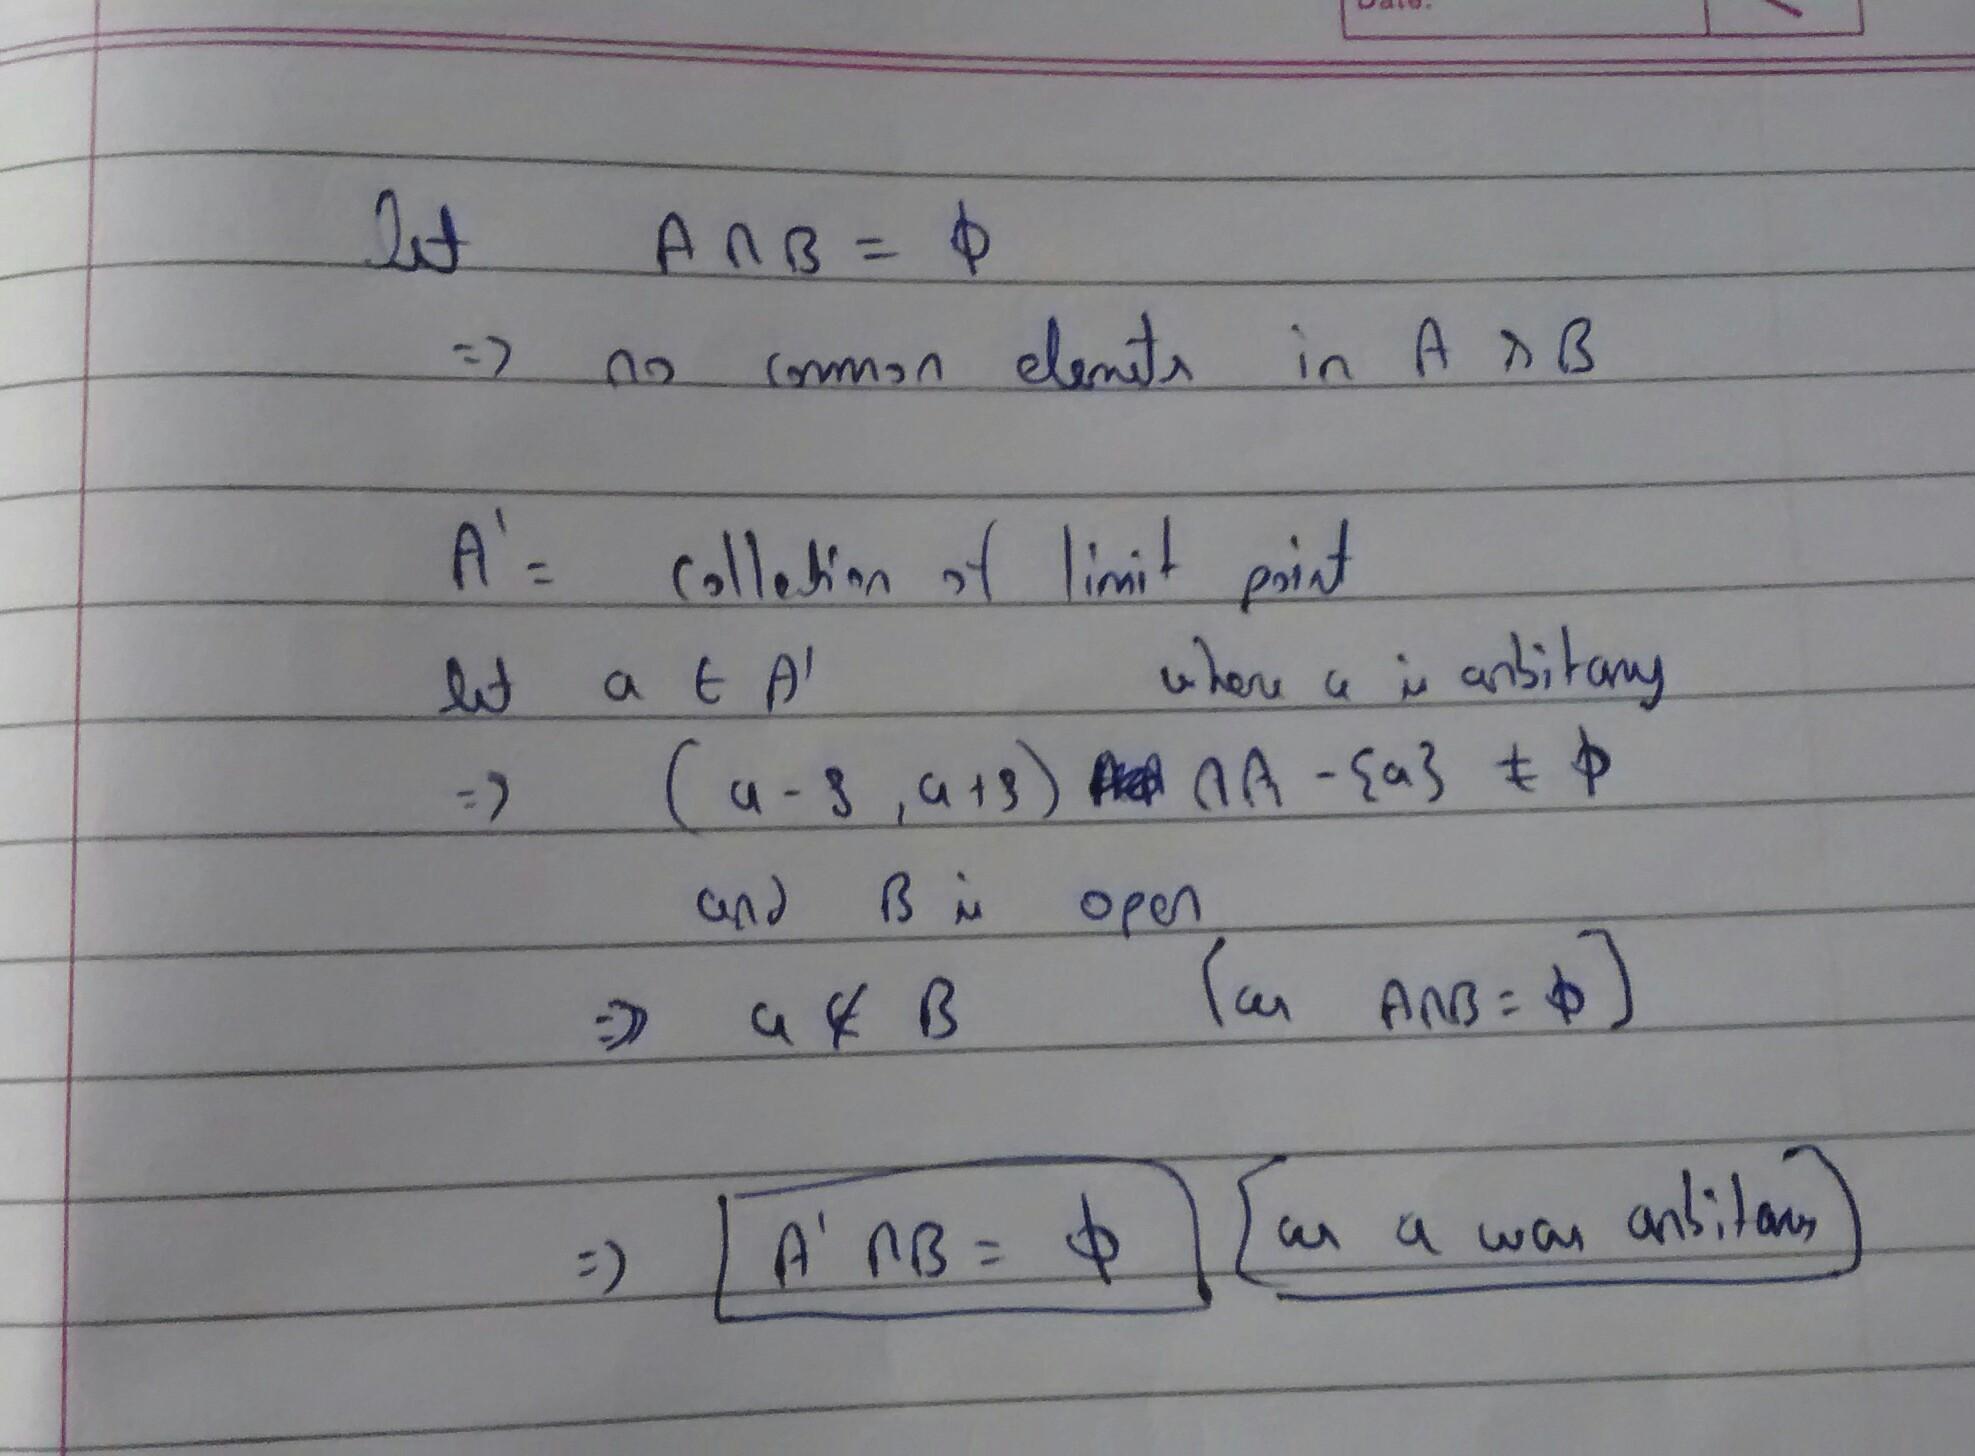 Date:
let A ∩ B = ϕ
=> no common elemets in A & B
A' = collection of limit point
let a ∈ A' where a is arbitary
=> (a-δ, a+δ) ∩ A - {a} ≠ ϕ
and B is open
=> a ∉ B [as A∩B = ϕ]
=> A' ∩ B = ϕ [as a was arbitary]